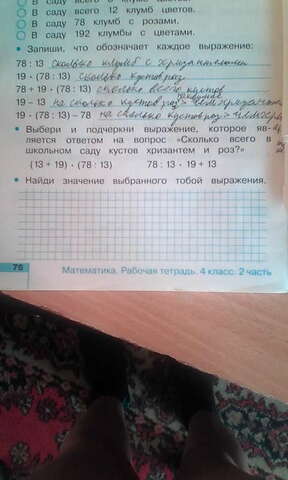 В саду всего 12 клумб цветов.
В саду 78 клумб с розами.
В саду 192 клумбы с цветами.
• Запиши, что обозначает каждое выражение:
78 : 13 сколько клумб с хризантемами
19 · (78 : 13) сколько кустов роз
78 + 19 · (78 : 13) сколько всего кустов
19 − 13 на сколько кустов роз > чем хризантем
19 · (78 : 13) − 78 на сколько кустов роз > чем
• Выбери и подчеркни выражение, которое яв-
ляется ответом на вопрос «Сколько всего в
школьном саду кустов хризантем и роз?»
(13 + 19) · (78 : 13) 78 : 13 · 19 + 13
• Найди значение выбранного тобой выражения.
76 Математика. Рабочая тетрадь. 4 класс. 2 часть